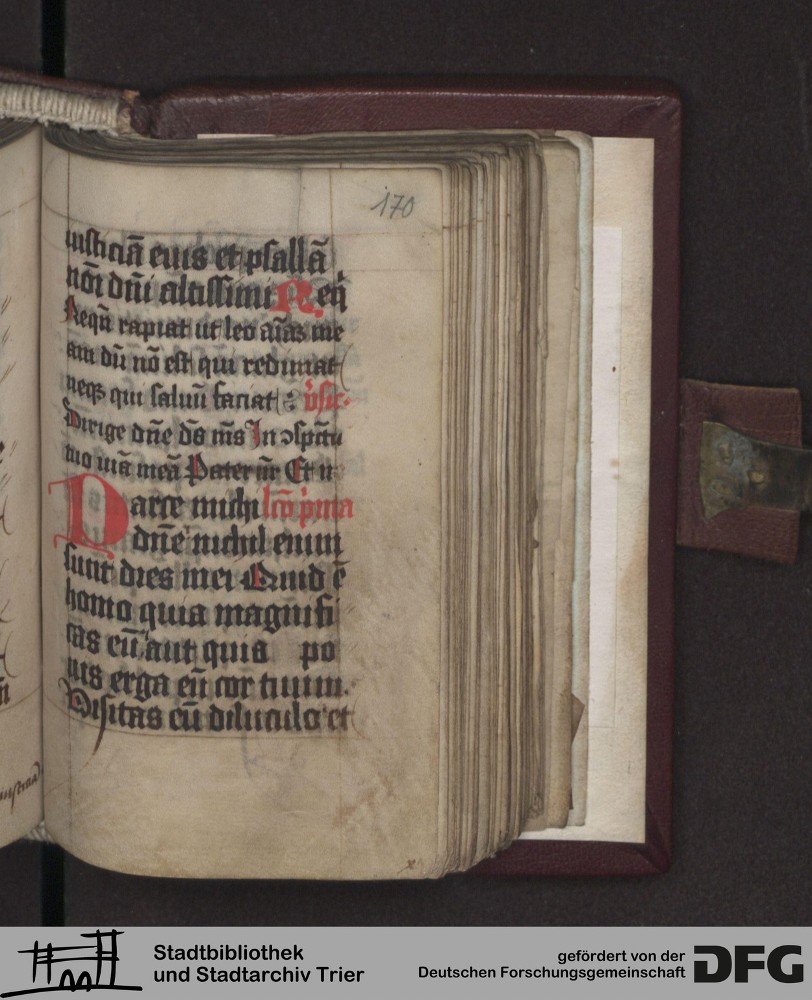 170
iusticiā eius et psallā
nōi dn̄i altissimi Req̄
Nequā rapiat ut leo aīas me
am dū nō est qui redimat
neqꝫ qui saluū faciat
Dirige dn̄e ds m̄s In ɔspc̄tu
tuo uiā meā Pater nr̄ Et n
Parce michi lc̄o p̄ma
dn̄e nichil enim
sunt dies mei Quid ē
homo quia magnifi
cas eū aut quia po
nis erga eū cor tuum
Visitas eū diluculo et
Stadtbibliothek
und Stadtarchiv Trier
gefördert von der
Deutschen Forschungsgemeinschaft
DFG